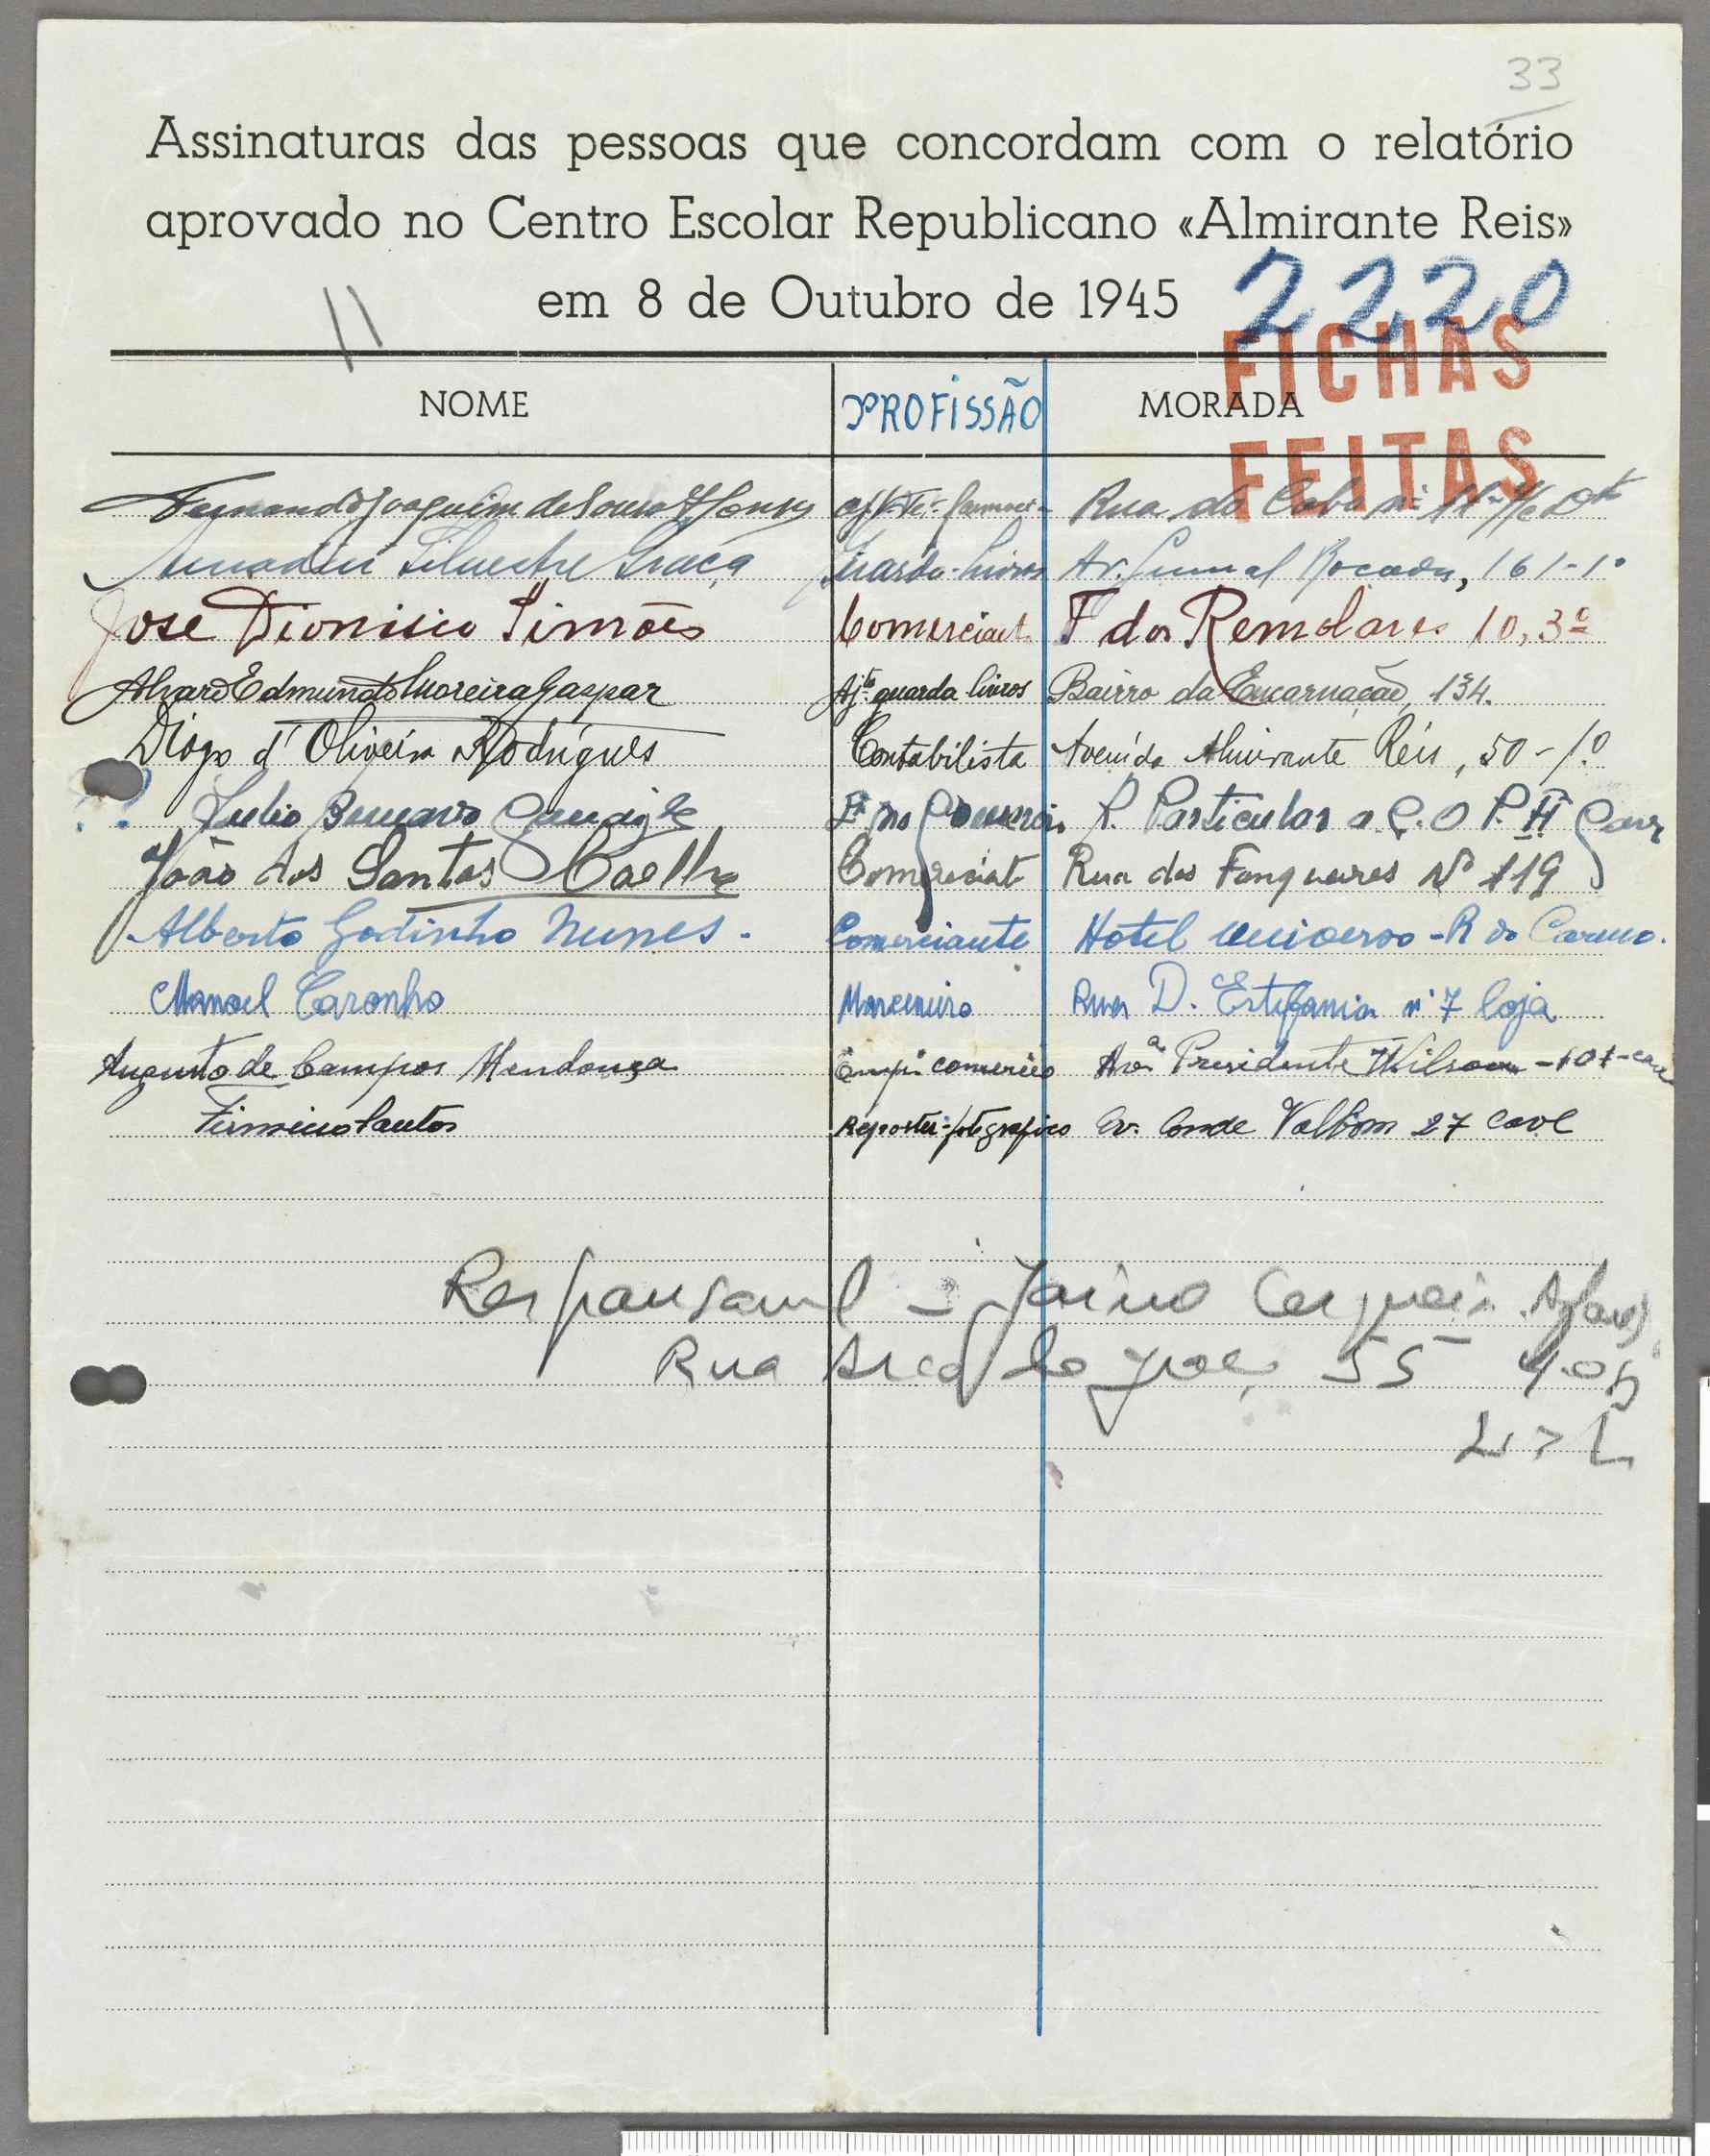 33
Assinaturas das pessoas que concordam com o relatório
aprovado no Centro Escolar Republicano «Almirante Reis»
em 8 de Outubro de 1945
2220
11
FICHAS
FEITAS
NOME PROFISSÃO MORADA
Fernando Joaquim de Sousa Rua do Cabo
Amadeu Silvestre Graça Guarda-Livros Av. General Roçadas, 161-1º
José Dionisio Simões Comerciant. T dos Remolares 10, 3º
Alvaro Edmundo Moreira Gaspar Ajte guarda livros Bairro da Encarnação, 134.
Diogo d'Oliveira Rodrigues Contabilista Avenida Almirante Reis, 50-1º
?? Julio no R. Particular a
João dos Santos Coelho Comerciante Rua dos Fanqueires Nº 119
Alberto Godinho Nunes. Comerciante Hotel Universo - R do Carmo.
Manoel Caronho Marceneiro Rua D. Estefania nº 7 loja
Augusto de Campos Mendonça Empº comercio Avª Presidente Wilson
Firmino Santos Reporter-fotografico Av. Conde Valbom 27 cave
Jaime Cerqueira
Rua 55